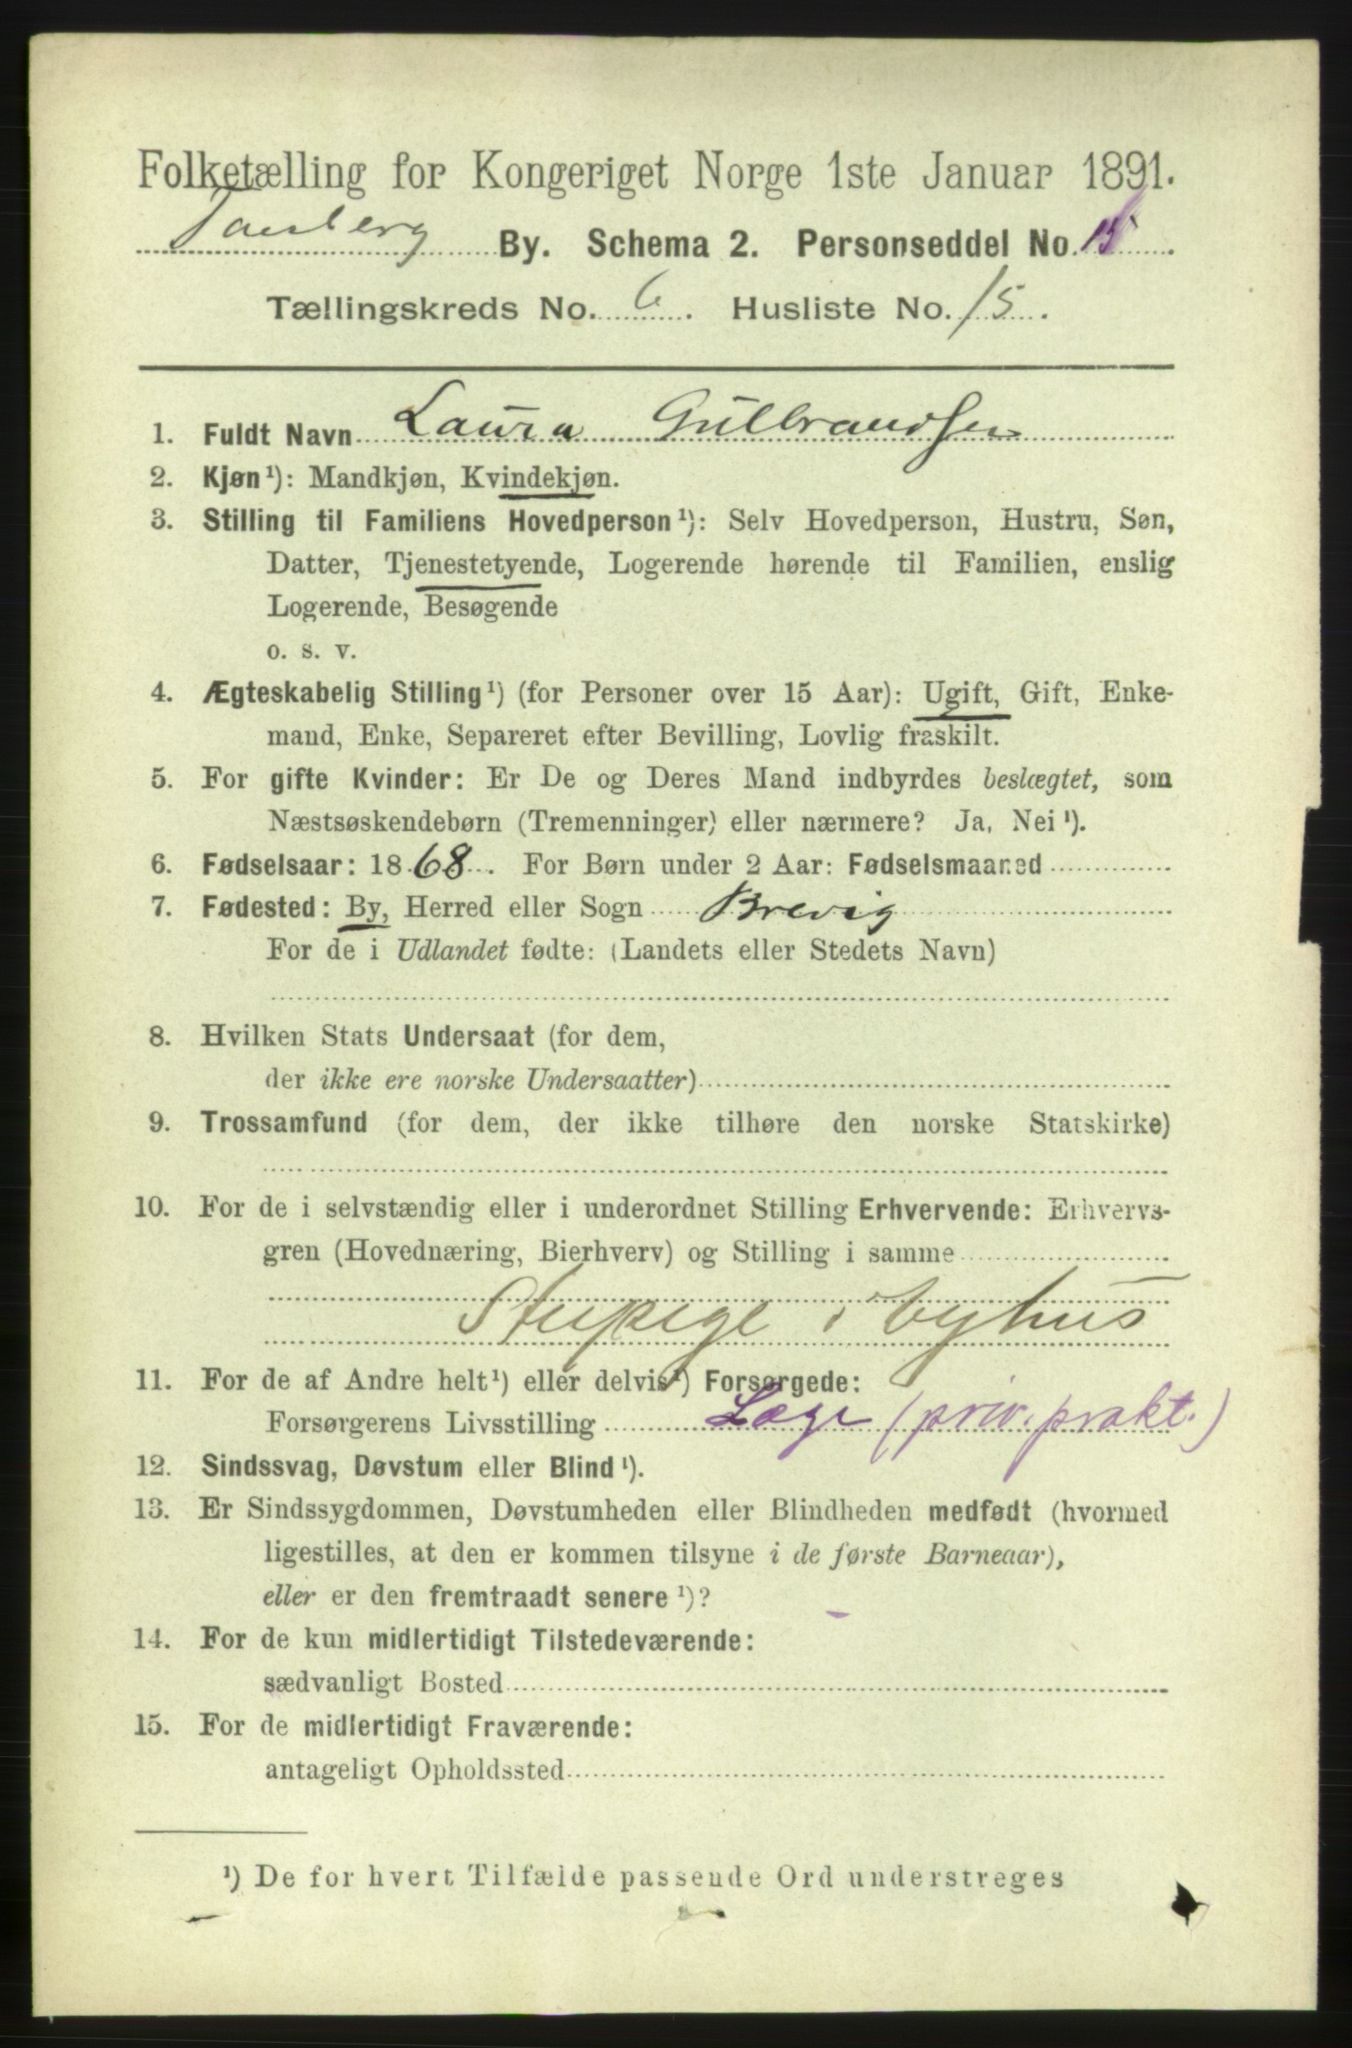 Folketælling for Kongeriget Norge 1ste Januar 1891.
Tønsberg By. Schema 2. Personseddel No.
Tællingskreds No. 6. Husliste No. 15.
1. Fuldt Navn Laura Gulbrandsen
2. Kjøn¹): Mandkjøn, Kvindekjøn.
3. Stilling til Familiens Hovedperson¹): Selv Hovedperson, Hustru, Søn,
Datter, Tjenestetyende, Logerende hørende til Familien, enslig
Logerende, Besøgende
o. s. v.
4. Ægteskabelig Stilling¹) (for Personer over 15 Aar): Ugift, Gift, Enke-
mand, Enke, Separeret efter Bevilling, Lovlig fraskilt.
5. For gifte Kvinder: Er De og Deres Mand indbyrdes beslægtet, som
Næstsøskendebørn (Tremenninger) eller nærmere? Ja, Nei¹).
6. Fødselsaar: 1868. For Børn under 2 Aar: Fødselsmaaned
7. Fødested: By, Herred eller Sogn Brevig
For de i Udlandet fødte: (Landets eller Stedets Navn)
8. Hvilken Stats Undersaat (for dem,
der ikke ere norske Undersaatter)
9. Trossamfund (for dem, der ikke tilhøre den norske Statskirke)
10. For de i selvstændig eller i underordnet Stilling Erhvervende: Erhvervs-
gren (Hovednæring, Bierhverv) og Stilling i samme
Stupige i byhus
11. For de af Andre helt¹) eller delvis¹) Forsørgede:
Forsørgerens Livsstilling Læge (priv. prakt.)
12. Sindssvag, Døvstum eller Blind¹).
13. Er Sindssygdommen, Døvstumheden eller Blindheden medfødt (hvormed
ligestilles, at den er kommen tilsyne i de første Barneaar),
eller er den fremtraadt senere¹)?
14. For de kun midlertidigt Tilstedeværende:
sædvanligt Bosted
15. For de midlertidigt Fraværende:
antageligt Opholdssted
¹) De for hvert Tilfælde passende Ord understreges